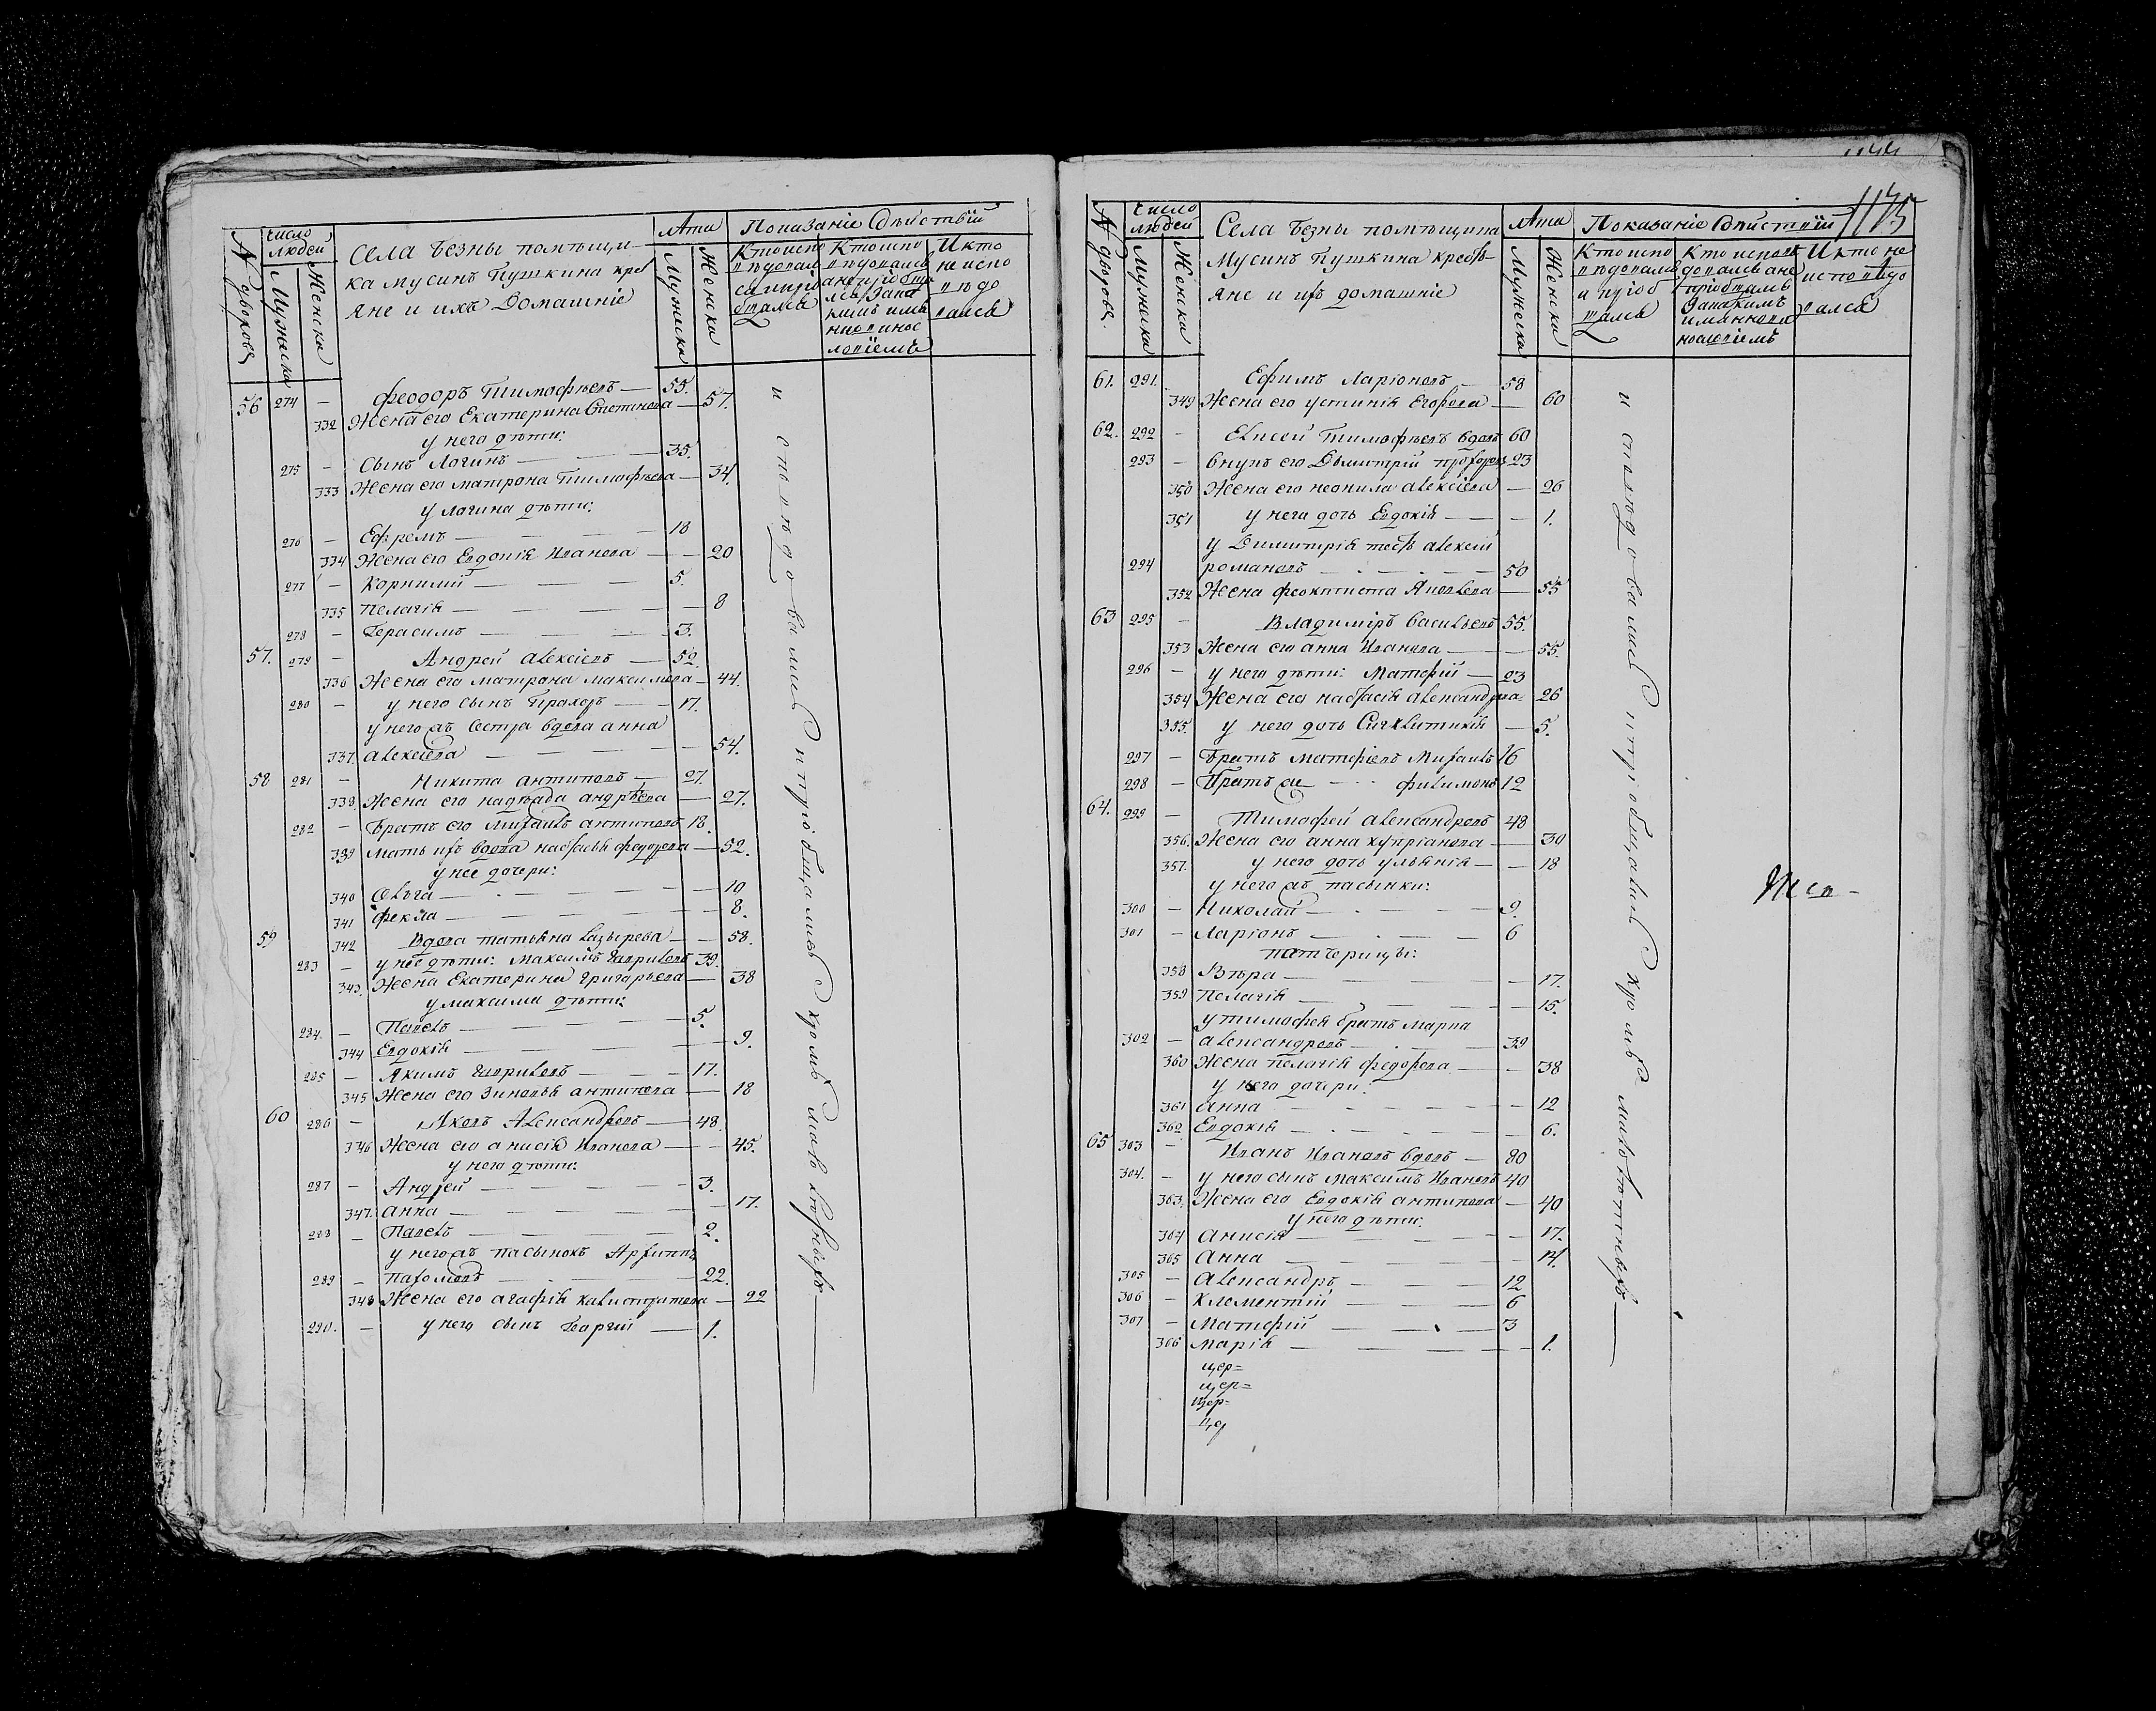 N дворовъ
число людей
Мужеска
Женска
Села Бездны помѣщи-
ка Мусинъ Пушкина кресть
яне и ихъ Домашніе
Лета
Мужеска
Женска
Показаніе Дѣйствій
Кто испо
вѣдовал
Кто испо
вѣдовался
И кто
не испо
вѣдо
вался
56 274 — Феодоръ Тимофѣевъ — 55.
332 Жена его Екатерина Степанова — 57.
у него дѣти:
275 — Сынъ Логинъ — 35.
333 Жена его Матрона Тимофѣева — 34.
у Логина дѣти:
276 — Ефремъ — 18
334 Жена его Евдокія Иванова — 20
277 — Корнилий — 5.
335 Пелагія — 8
278 — Герасимъ — 3.
57. 279 — Андрей Алексіевъ — 52.
336 Жена его Матрона Максимова — 44.
280 — у него сынъ Прохоръ — 17.
у него жъ Сестра вдова Анна
337. Алексіева — 54.
58 281 — Никита Антиповъ — 27.
338. Жена его Надѣжда Андрѣева — 27.
282 — Братъ его Михаилъ Антиповъ 18.
339 Мать ихъ вдова Настасья Федорова — 52.
у нее дочери:
340 Ольга — 10
341 Фекла — 8.
59 342 Вдова Татьяна Лазырева — 58.
283 — у нее дѣти: Максимъ Гавриловъ 39.
343. Жена Екатерина Григорьева — 38
у Максима дѣти:
284. — Павелъ — 5.
344 Евдокія — 9.
285 — Якимъ Гавриловъ — 17.
345 Жена его Зиновья Антипова — 18
60 286 — Яковъ Александровъ — 48.
346 Жена его Анисія Иванова — 45.
у него дѣти:
287 — Андрей — 3.
347. Анна — 17.
288 — Павелъ — 2.
у него жъ пасынокъ Архиппъ
289 — Пахомовъ — 22.
348 Жена его Агафія Калистратова — 22
290. — у него сынъ Георгий — 1.
исповѣдовались и пріобщались кромѣ малолѣтныхъ
1175
N дворовъ.
число людей
Мужеска
Женска
Села Бездны помѣщика
Мусинъ Пушкина кресть-
яне и ихъ домашніе
Лета
Мужеска
Женска
Показаніе Дѣйствій
Кто испо
вѣдовался
и пріоб
щался
И кто не
исповѣдо
вался
61. 291. Ефимъ Ларіоновъ — 58
349 Жена его Устинія Егорова — 60
62. 292 — Елисей Тимофѣевъ вдовъ 60
293 — Внукъ его Димитрій Прохоровъ 23
350 Жена его Неонила Алексіева — 26
351 у него дочь Евдокія — 1.
у Димитрія тесть Алексій
294 Романовъ — 50
352 Жена Феоктиста Яковлева — 55
63 295 — Владиміръ Васильевъ 55.
353 Жена его Анна Иванова — 55.
296 — у него дѣти: Матфій — 23
354 Жена его Настасія Александрова 26
355. у него дочь Сигклитикія — 5.
297 — Братъ Матфіевъ Михаилъ 16
298 — Братъ же — Филимонъ 12
64. 299 — Тимофей Александровъ 48
356. Жена его Анна Купріанова — 39
357. у него дочь Ульянія — 18
у него жъ пасынки:
300 — Николай — 9.
301 — Ларіонъ — 6
патчерицы:
358 Вѣра — 17.
359 Пелагія — 15.
у Тимофея братъ Марка
302 — Александровъ — 39
360 Жена Пелагія Федорова — 38
у него дочери:
361 Анна — 12
362 Евдокія — 6.
65 303 — Иванъ Ивановъ вдовъ — 80
304. — у него сынъ Максимъ Ивановъ 40
363. Жена его Евдокія Антипова — 40
у него дѣти:
364 Анисія — 17.
365 Анна — 14.
305 — Александръ — 12
306 — Клементій — 6
307 — Матфій — 3
366 Марія — 1.
цер=
цер=
цер=
исповѣдовались и пріобщались кромѣ малолѣтныхъ